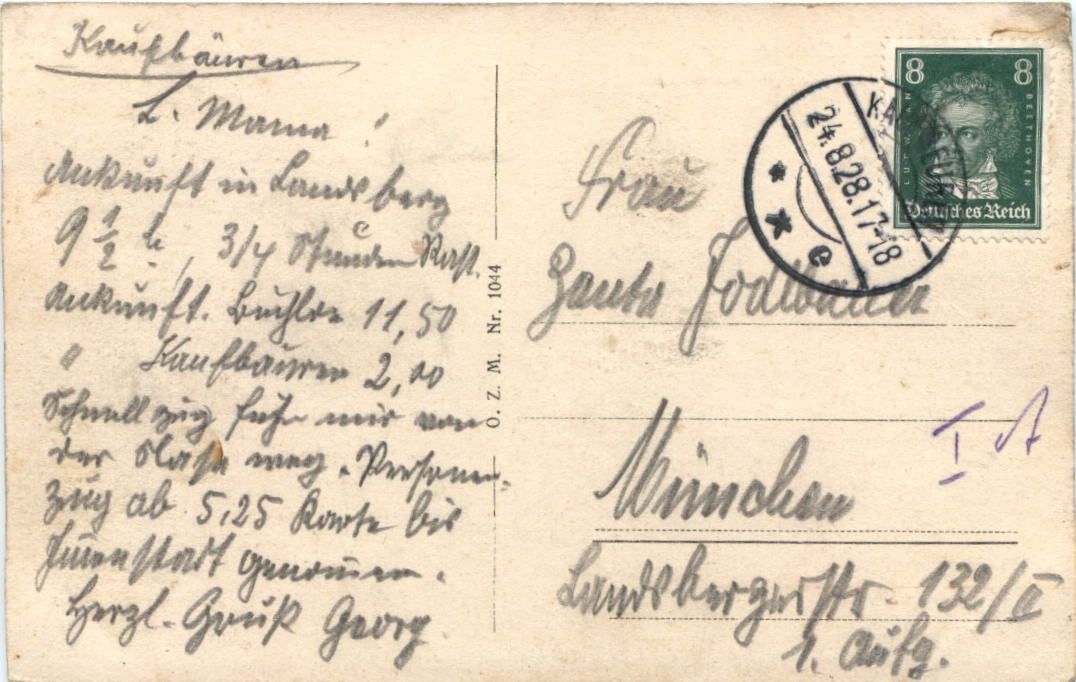 Kaufbäuren
L. Mama!
Ankunft in Landsberg
9 1/2 u, 3/4 Stunden Rast.
Ankunft. Buchloe 11,50
" Kaufbäuren 2,00
Schnellzug fuhr mir von
der Nase weg. Personen-
zug ab 5,25 Karte bis
Immenstadt genommen.
Herzl. Gruß Georg
O. Z. M. Nr. 1044
8 8
LUDWIG VAN BEETHOVEN
Deutsches Reich
KAUFBEUREN
24.8.28.17-18
* * e
Frau
Jodlbauer
München
Landsbergerstr. 132/II
1. Aufg.
I A